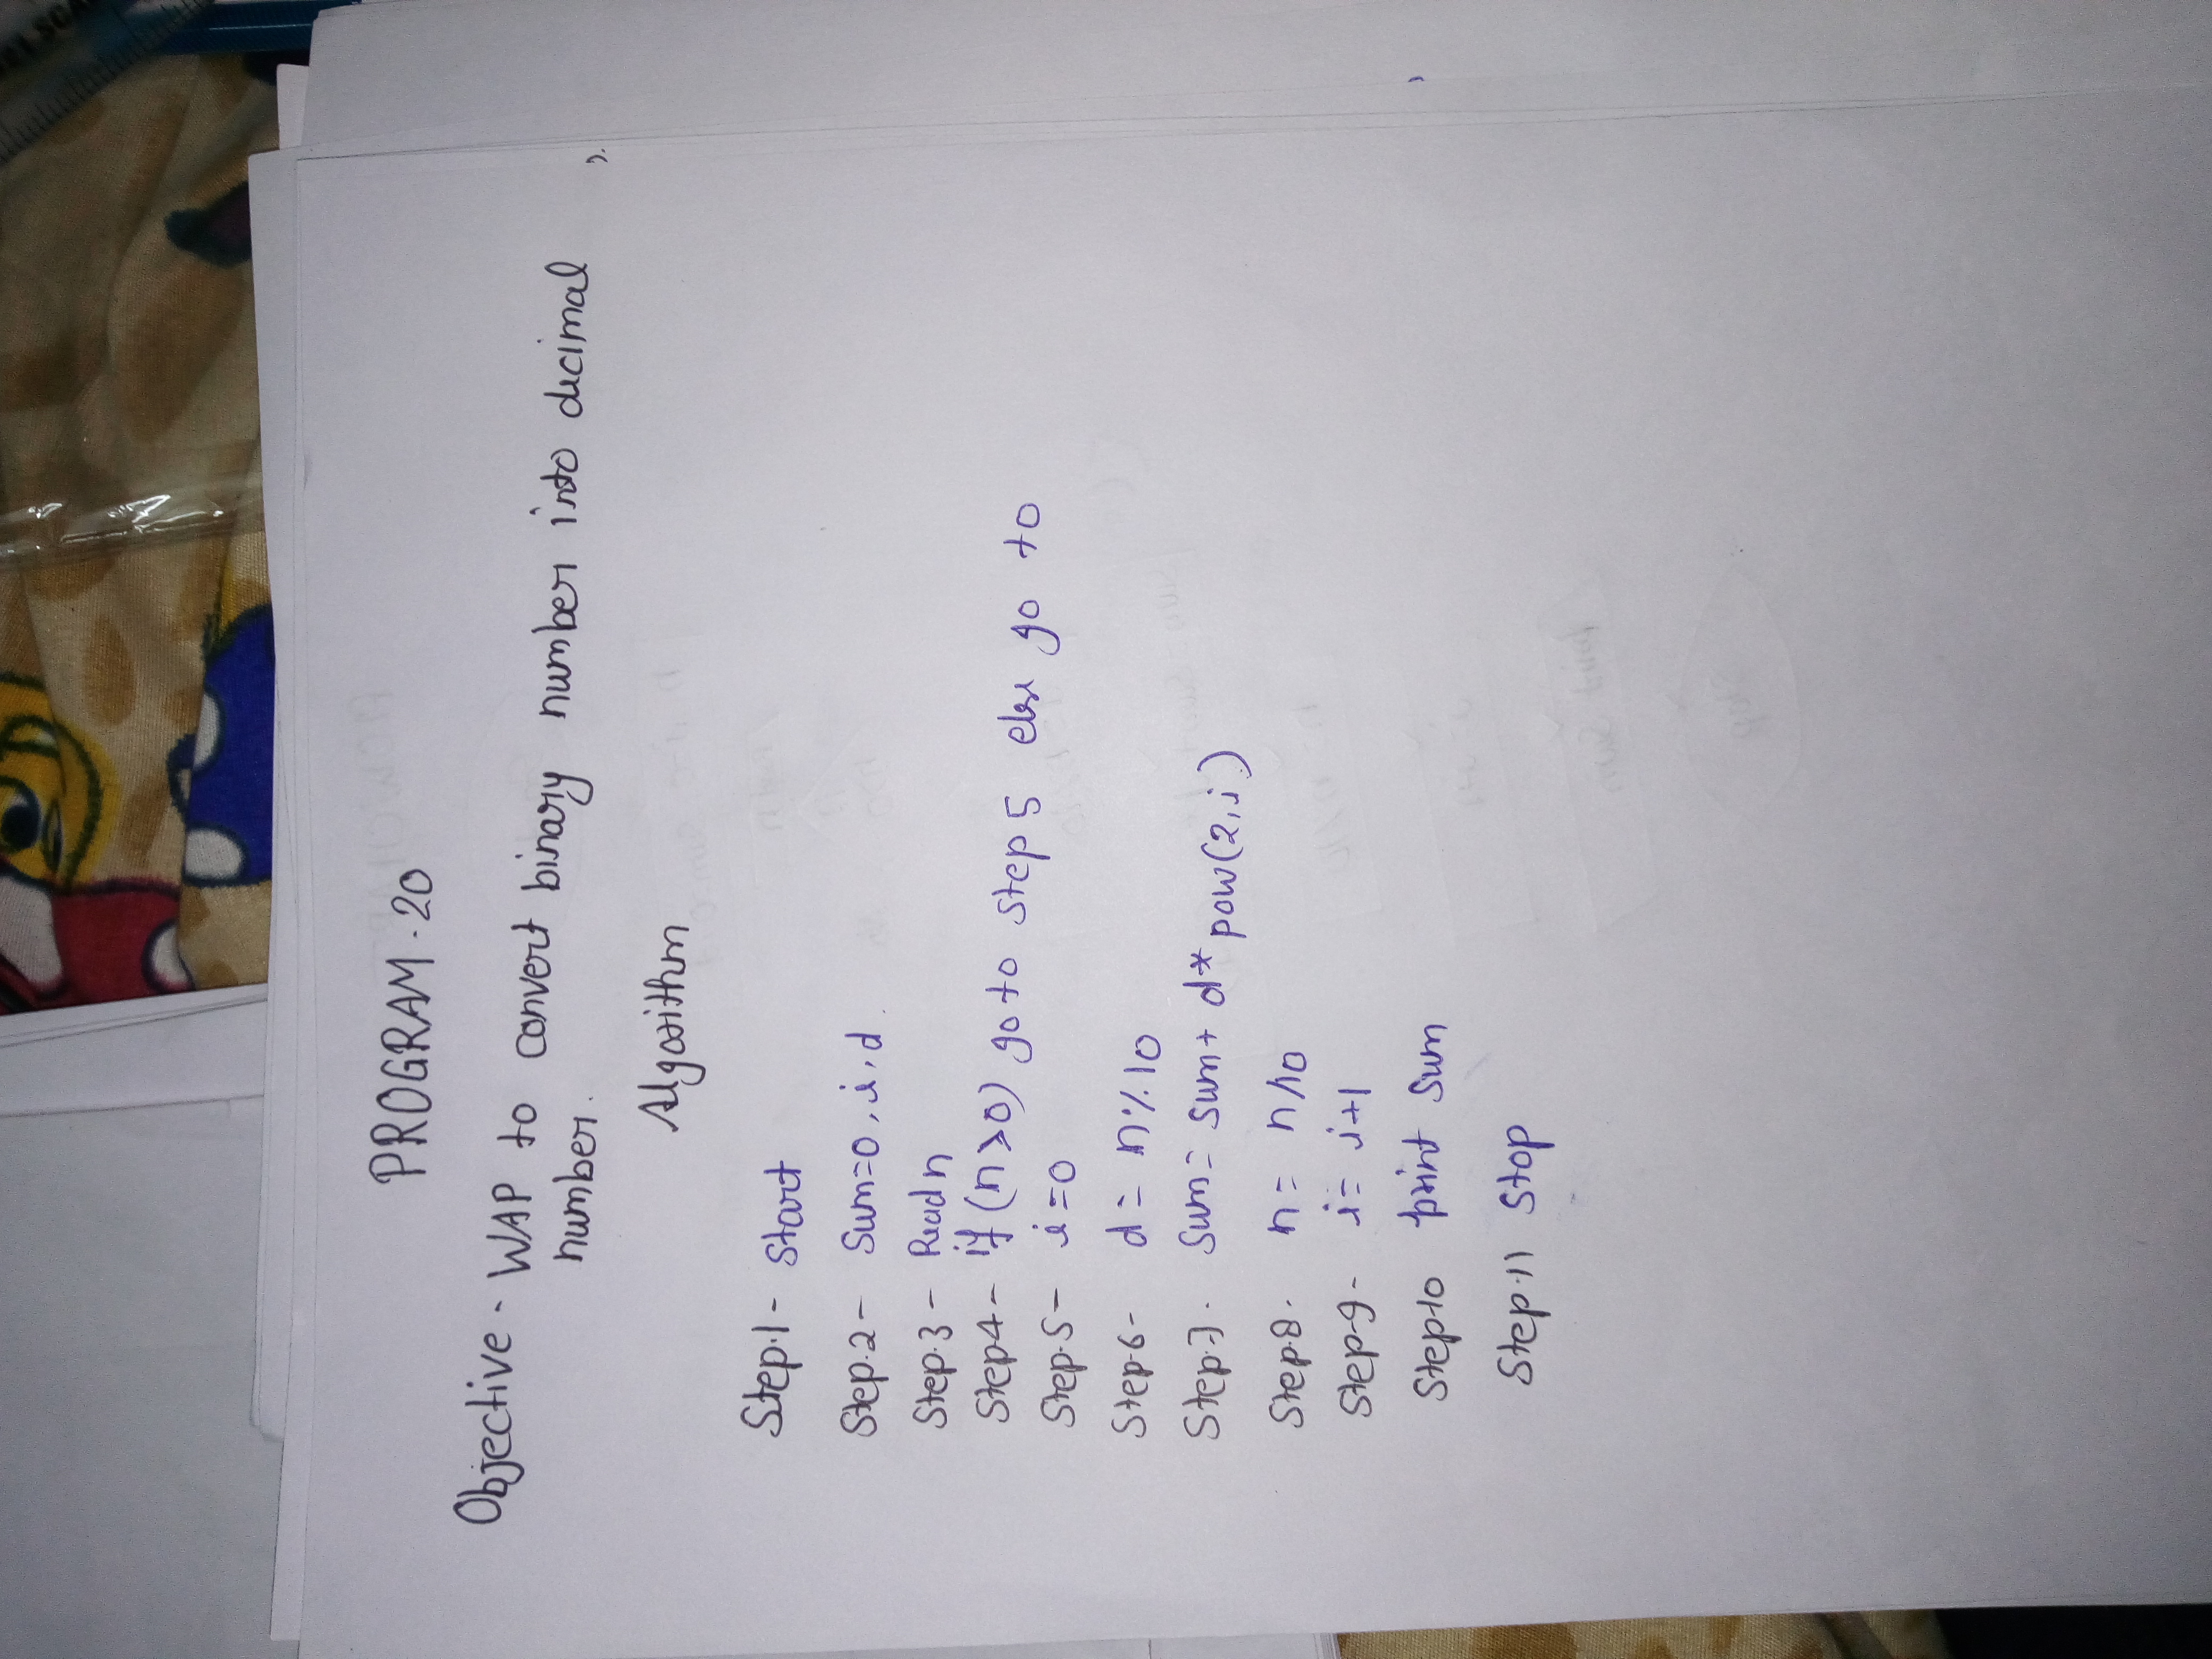 PROGRAM-20
Objective - WAP to convert binary number into decimal
number.
Algorithm
Step.1 - Start
Step.2 - Sum=0, i, d
Step.3 - Read n
Step-4 - if (n>0) go to step 5 else go to
Step.5 - i=0
Step-6 - d = n%10
Step.7. Sum = Sum + d* pow(2,i)
Step.8. n = n/10
Step-9 - i = i+1
Step-10 print sum
Step.11 Stop